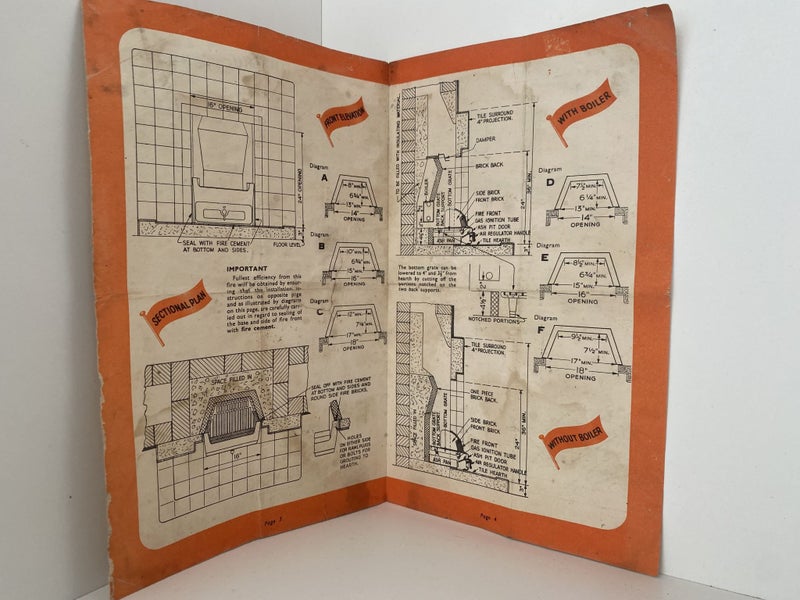 FRONT ELEVATION
16" OPENING
24" OPENING
SEAL WITH FIRE CEMENT
AT BOTTOM AND SIDES.
FLOOR LEVEL
Diagram
A
8" MIN.
6¾" MIN.
13" MIN.
14"
OPENING
Diagram
B
10" MIN.
6¾" MIN.
15" MIN.
16"
OPENING
Diagram
C
12" MIN.
7¼" MIN.
17" MIN.
18"
OPENING
IMPORTANT
Fullest efficiency from this
fire will be obtained by ensur-
ing that the installation in-
structions on opposite page
and as illustrated by diagrams
on this page, are carefully car-
ried out in regard to sealing of
the base and side of fire front
with fire cement.
SECTIONAL PLAN
SPACE FILLED IN
16"
SEAL OFF WITH FIRE CEMENT
AT BOTTOM AND SIDES AND
ROUND SIDE FIRE BRICKS.
HOLES
ON EITHER SIDE
FOR RAWLPLUGS
OR BOLTS FOR
GROUTING TO
HEARTH.
Page 3
WITH BOILER
TO BE FILLED WITH INSULATING MATERIAL
TILE SURROUND
4" PROJECTION.
DAMPER
BRICK BACK
BOILER
BOTTOM GRATE
BACK SUPPORT
BOTTOM GRATE
SIDE BRICK
FRONT BRICK
FIRE FRONT
GAS IGNITION TUBE
ASH PIT DOOR
AIR REGULATOR HANDLE
TILE HEARTH
ASH PAN
24"
36" MIN.
The bottom grate can be
lowered to 4" and 3½" from
hearth by cutting off the
portions notched on the
two back supports.
NOTCHED PORTIONS
Diagram
D
7½" MIN.
6¼" MIN.
13" MIN.
14"
OPENING
Diagram
E
8½" MIN.
6¾" MIN.
15" MIN.
16"
OPENING
Diagram
F
9½" MIN.
7½" MIN.
17" MIN.
18"
OPENING
TILE SURROUND
4" PROJECTION.
ONE PIECE
BRICK BACK.
SPACE FILLED IN
BOTTOM GRATE
BACK SUPPORT
BOTTOM GRATE
SIDE BRICK
FRONT BRICK
FIRE FRONT
GAS IGNITION TUBE
ASH PIT DOOR
AIR REGULATOR HANDLE
TILE HEARTH
ASH PAN
24"
36" MIN.
WITHOUT BOILER
Page 4